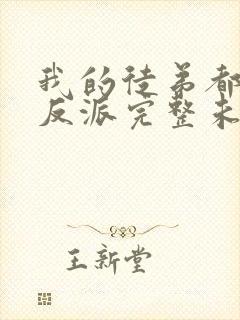 我的徒弟都
反派完整未
王新堂